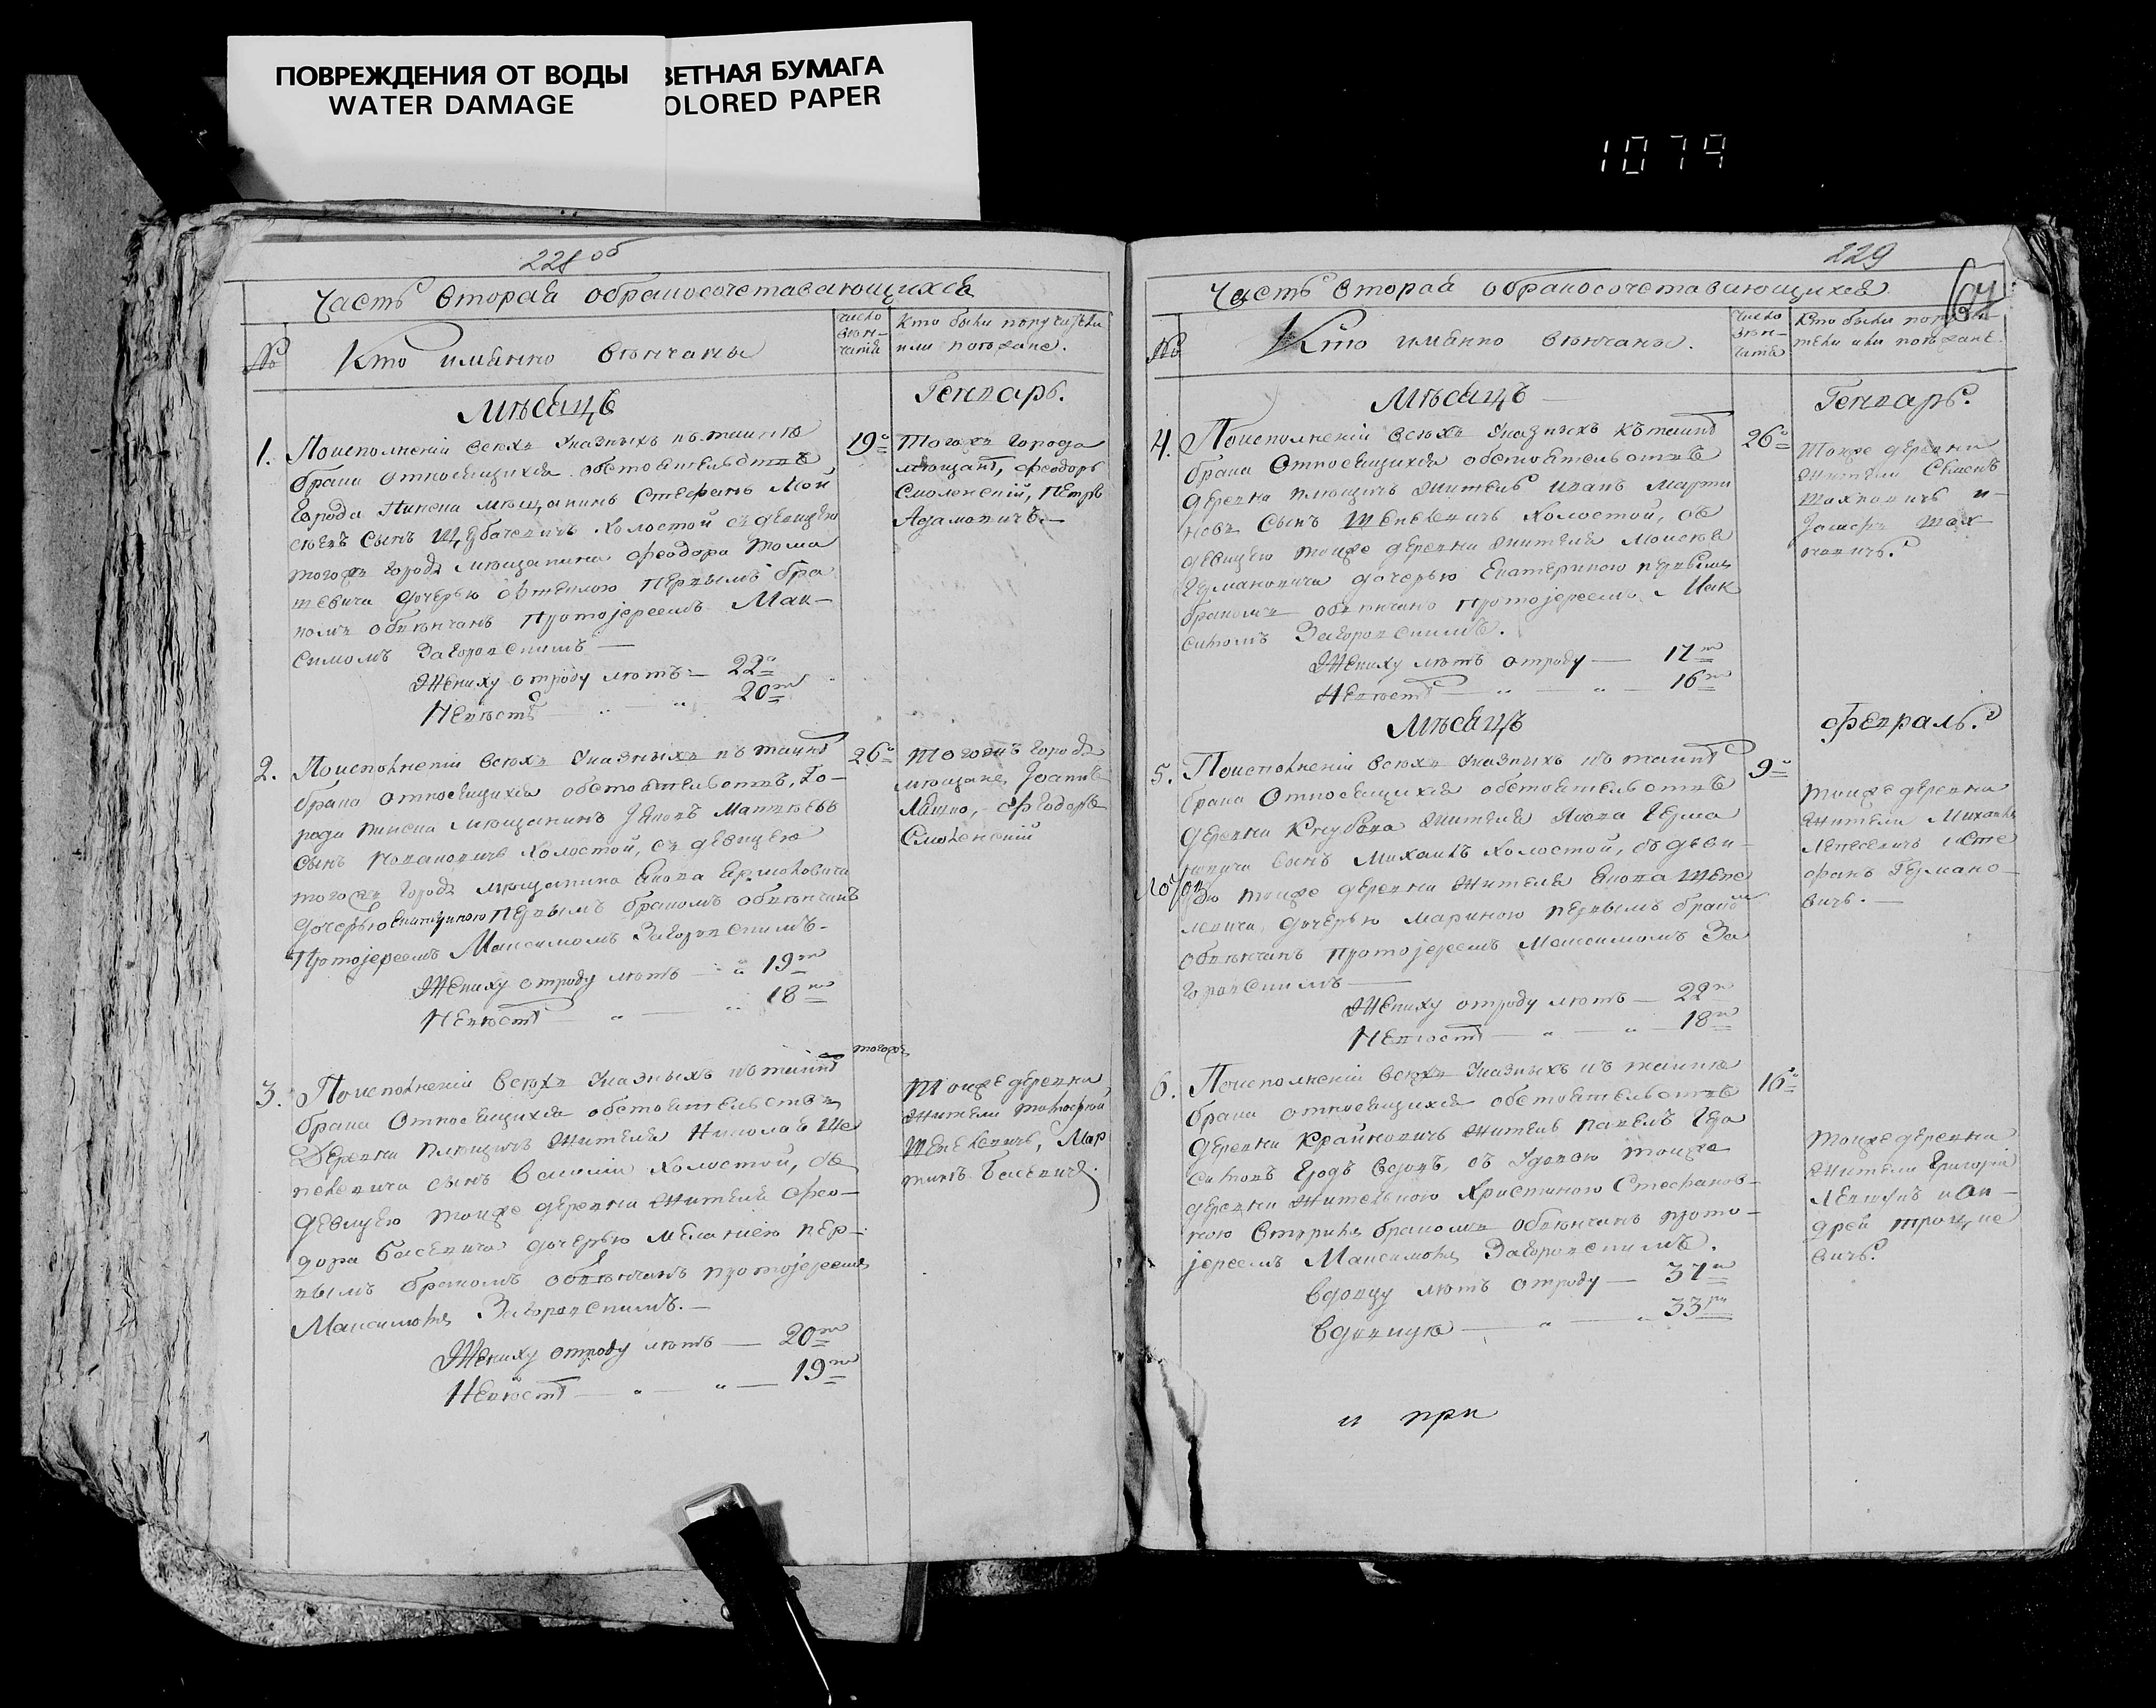 ПОВРЕЖДЕНИЯ ОТ ВОДЫ
WATER DAMAGE
ВЕТНАЯ БУМАГА
OLORED PAPER
1079
228 об
Часть вторая обракосочетавающихся
№
Кто имянно венчаны
число
вѣн-
чанія
Кто были поручители
или поѣзжане.
Мѣсяцъ
Генварь.
1. Поисполненіи всѣхъ указныхъ къ таинѣ
брака относящихся обстоятельствъ
города Пинска мѣщанинъ Стефанъ Мой
сѣевъ сынъ холостой съ девицею
тогожъ города мѣщанина Феодора Тома
шевича дочерью первымъ бра
комъ обвѣнчанъ Протоіереемъ Мак-
симомъ Загоровскимъ —
Жениху отроду лѣтъ — 22
Невѣстѣ — 20
19
Тогожъ города
мѣщане, Феодоръ
Смоленскій, Петръ
Адамовичъ. —
2. Поисполненіи всѣхъ указныхъ къ таинѣ
брака относящихся обстоятельствъ, Го-
рода Пинска мѣщанинъ Яковъ Матвѣевъ
сынъ холостой, съ девицею
тогожъ города мѣщанина Якова Ярмоловича
дочерью Екатериною первымъ бракомъ обвѣнчанъ
Протоіереемъ Максимомъ Загоровскимъ.
Жениху отроду лѣтъ — 19
Невѣстѣ — 18
26
Тогожъ города
мѣщане, Іоаннъ
Феодоръ
Смоленскій
3. Поисполненіи всѣхъ указныхъ къ таинѣ
брака относящихся обстоятельствъ
Деревни Плещичъ жителя Николая Ше
пелевича сынъ Василій холостой, съ
девицею тоижъ деревни жителя Фео-
дора Басевича дочерью Меланіею пер-
вымъ бракомъ обвѣнчанъ протоіереемъ
Максимомъ Загоровскимъ. —
Жениху отроду лѣтъ — 20
Невѣстѣ — 19
тогожъ
Тоижъ деревни
жители Тимофей
Шепелевичъ, Мар
тинъ Басевичъ.
229
Часть вторая обракосочетавающихся
№
Кто имянно вѣнчаны.
число
вѣн-
чанія
Кто были поручи
тели или поѣзжане.
Мѣсяцъ —
Генварь.
4. Поисполненіи всѣхъ указныхъ къ таинѣ
брака относящихся обстоятельствъ
деревни Плещичъ житель Иванъ Марти
новъ сынъ Шепелевичъ холостой, съ
девицею тоижъ деревни жителя Моисея
Германовича дочерью Екатериною первымъ
бракомъ обвѣнчанъ Протоіереемъ Мак
симомъ Загоровскимъ.
Жениху лѣтъ отроду — 17
Невѣстѣ — 16
26
Тоиже деревни
жители Семенъ
и
Мѣсяцъ
Февраль.
5. Поисполненіи всѣхъ указныхъ къ таинѣ
брака относящихся обстоятельствъ
деревни жителя Якова Герма
новича сынъ Михаилъ холостой, съ деви-
цею тоиже деревни жителя Якова Шепе
левича дочерью Мариною первымъ бракомъ
обвѣнчанъ Протоіереемъ Максимомъ За
горовскимъ —
Жениху отроду лѣтъ — 22
Невѣстѣ — 18
9
тоиже деревни
жители Михаилъ
и Сте
фанъ Германо-
вичъ. —
6. Поисполненіи всѣхъ указныхъ къ таинѣ
брака относящихся обстоятельствъ
деревни Крайновичъ житель Павелъ Гера
симовъ вдовъ, съ удовою тоиже
деревни жительницею Христиною Стефанов-
ною вторымъ бракомъ обвѣнчанъ прото-
іереемъ Максимомъ Загоровскимъ.
Вдовцу лѣтъ отроду — 37
Вдовицѣ — 33
16
тоиже деревни
жители Григорій
и Ан-
дрей
вичъ.
и при